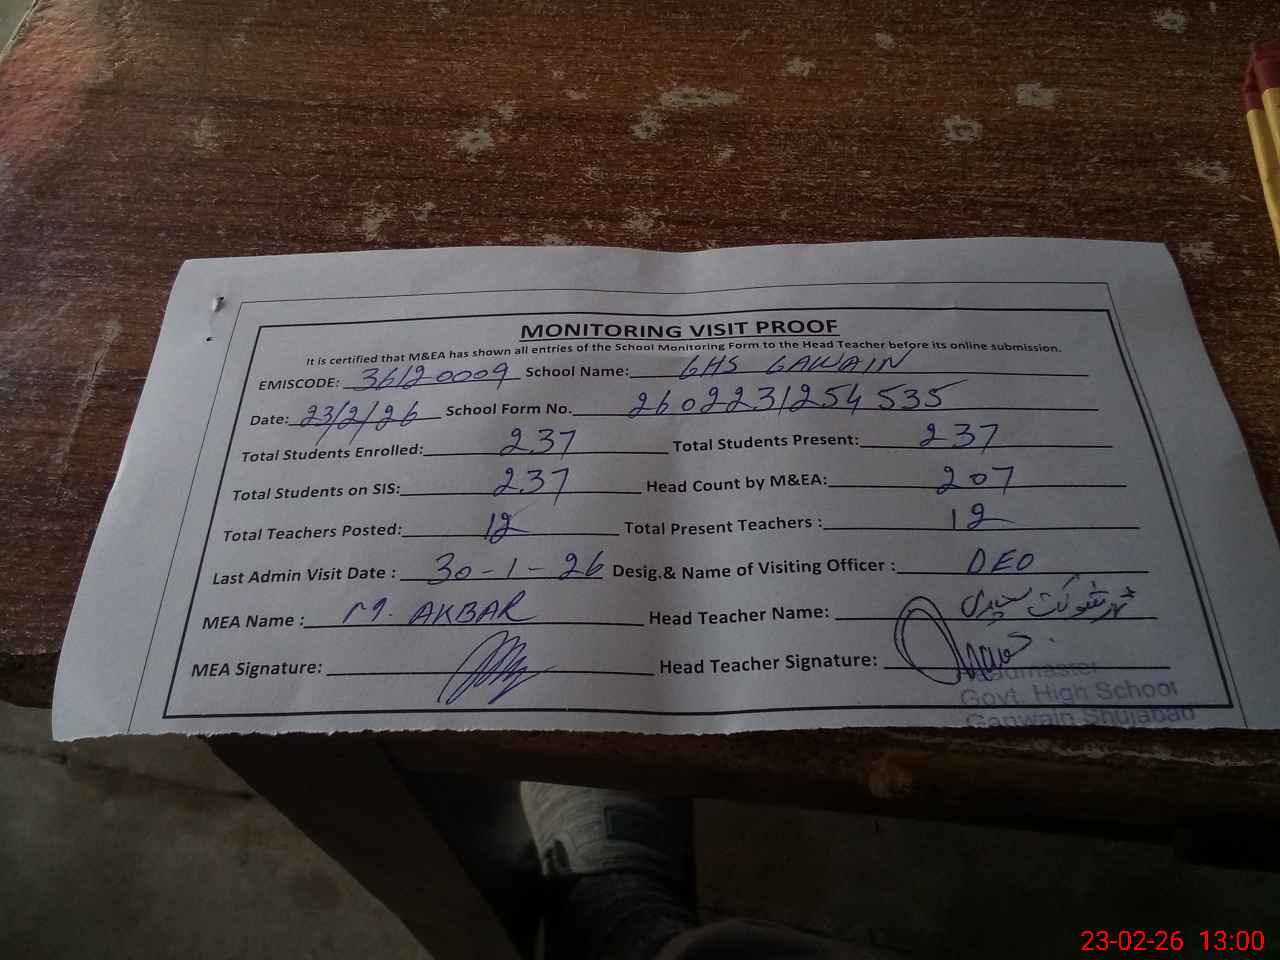 MONITORING VISIT PROOF
It is certified that M&EA has shown all entries of the School Monitoring Form to the Head Teacher before its online submission.
EMISCODE: 36120009 School Name: GHS GAWAIN
Date: 23/2/26 School Form No. 2602231254535
Total Students Enrolled: 237 Total Students Present: 237
Total Students on SIS: 237 Head Count by M&EA: 207
Total Teachers Posted: 12 Total Present Teachers : 12
Last Admin Visit Date : 30-1-26 Desig.& Name of Visiting Officer : DEO
MEA Name : M. AKBAR Head Teacher Name: شوکت
MEA Signature: Head Teacher Signature:
Headmaster
Govt. High School
Ganwain Shujabad
23-02-26 13:00